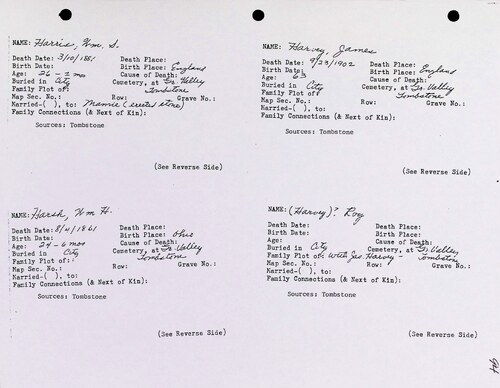 NAME: Harris, Wm. S.
Death Date: 3/10/1881 Death Place:
Birth Date: Birth Place: England
Age: 26 - 2 mo Cause of Death:
Buried in City Cemetery, at Gr. Valley
Family Plot of: Tombstone
Map Sec. No.: Row: Grave No.:
Married-( ), to: Mamie (erected stone)
Family Connections (& Next of Kin):
Sources: Tombstone
(See Reverse Side)
NAME: Harvey, James
Death Date: 9/23/1902 Death Place:
Birth Date: Birth Place: England
Age: 63 Cause of Death:
Buried in City Cemetery, at Gr. Valley
Family Plot of: Tombstone
Map Sec. No.: Row: Grave No.:
Married-( ), to:
Family Connections (& Next of Kin):
Sources: Tombstone
(See Reverse Side)
NAME: Harsh, Wm H.
Death Date: 8/4/1861 Death Place:
Birth Date: Birth Place: Ohio
Age: 24 - 6 mos Cause of Death:
Buried in City Cemetery, at Gr. Valley
Family Plot of: Tombstone
Map Sec. No.: Row: Grave No.:
Married-( ), to:
Family Connections (& Next of Kin):
Sources: Tombstone
(See Reverse Side)
NAME: (Harvey)? Roy
Death Date: Death Place:
Birth Date: Birth Place:
Age: Cause of Death:
Buried in City Cemetery, at Gr. Valley
Family Plot of: with Jas. Harvey - Tombstone
Map Sec. No.: Row: Grave No.:
Married-( ), to:
Family Connections (& Next of Kin):
Sources: Tombstone
(See Reverse Side)